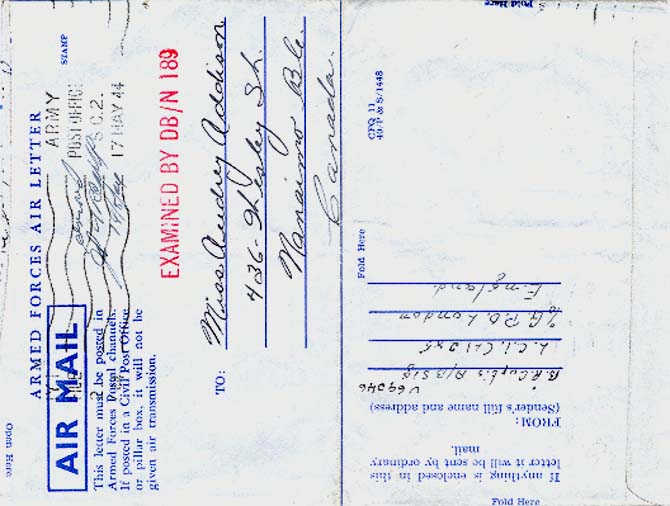 ARMED FORCES AIR LETTER
STAMP
AIR MAIL
This letter must be posted in
Armed Forces Postal channels.
If posted in a Civil Post Office
or pillar box it will not be
given air transmission.
ARMY
POST OFFICE
S C 2.
17 MAY 44
EXAMINED BY DB/N 189
TO:
Miss Audrey Addison
436- Wesley St.
Nanaimo B.C.
Canada.
Open Here
Fold Here
CFQ 11
40/P & S/1448
Fold Here
If anything is enclosed in this
letter it will be sent by ordinary
mail.
FROM:
(Sender's full name and address)
V 69046
A/B SIG
L.C.I.
% G.P.O. London
England.
Fold Here